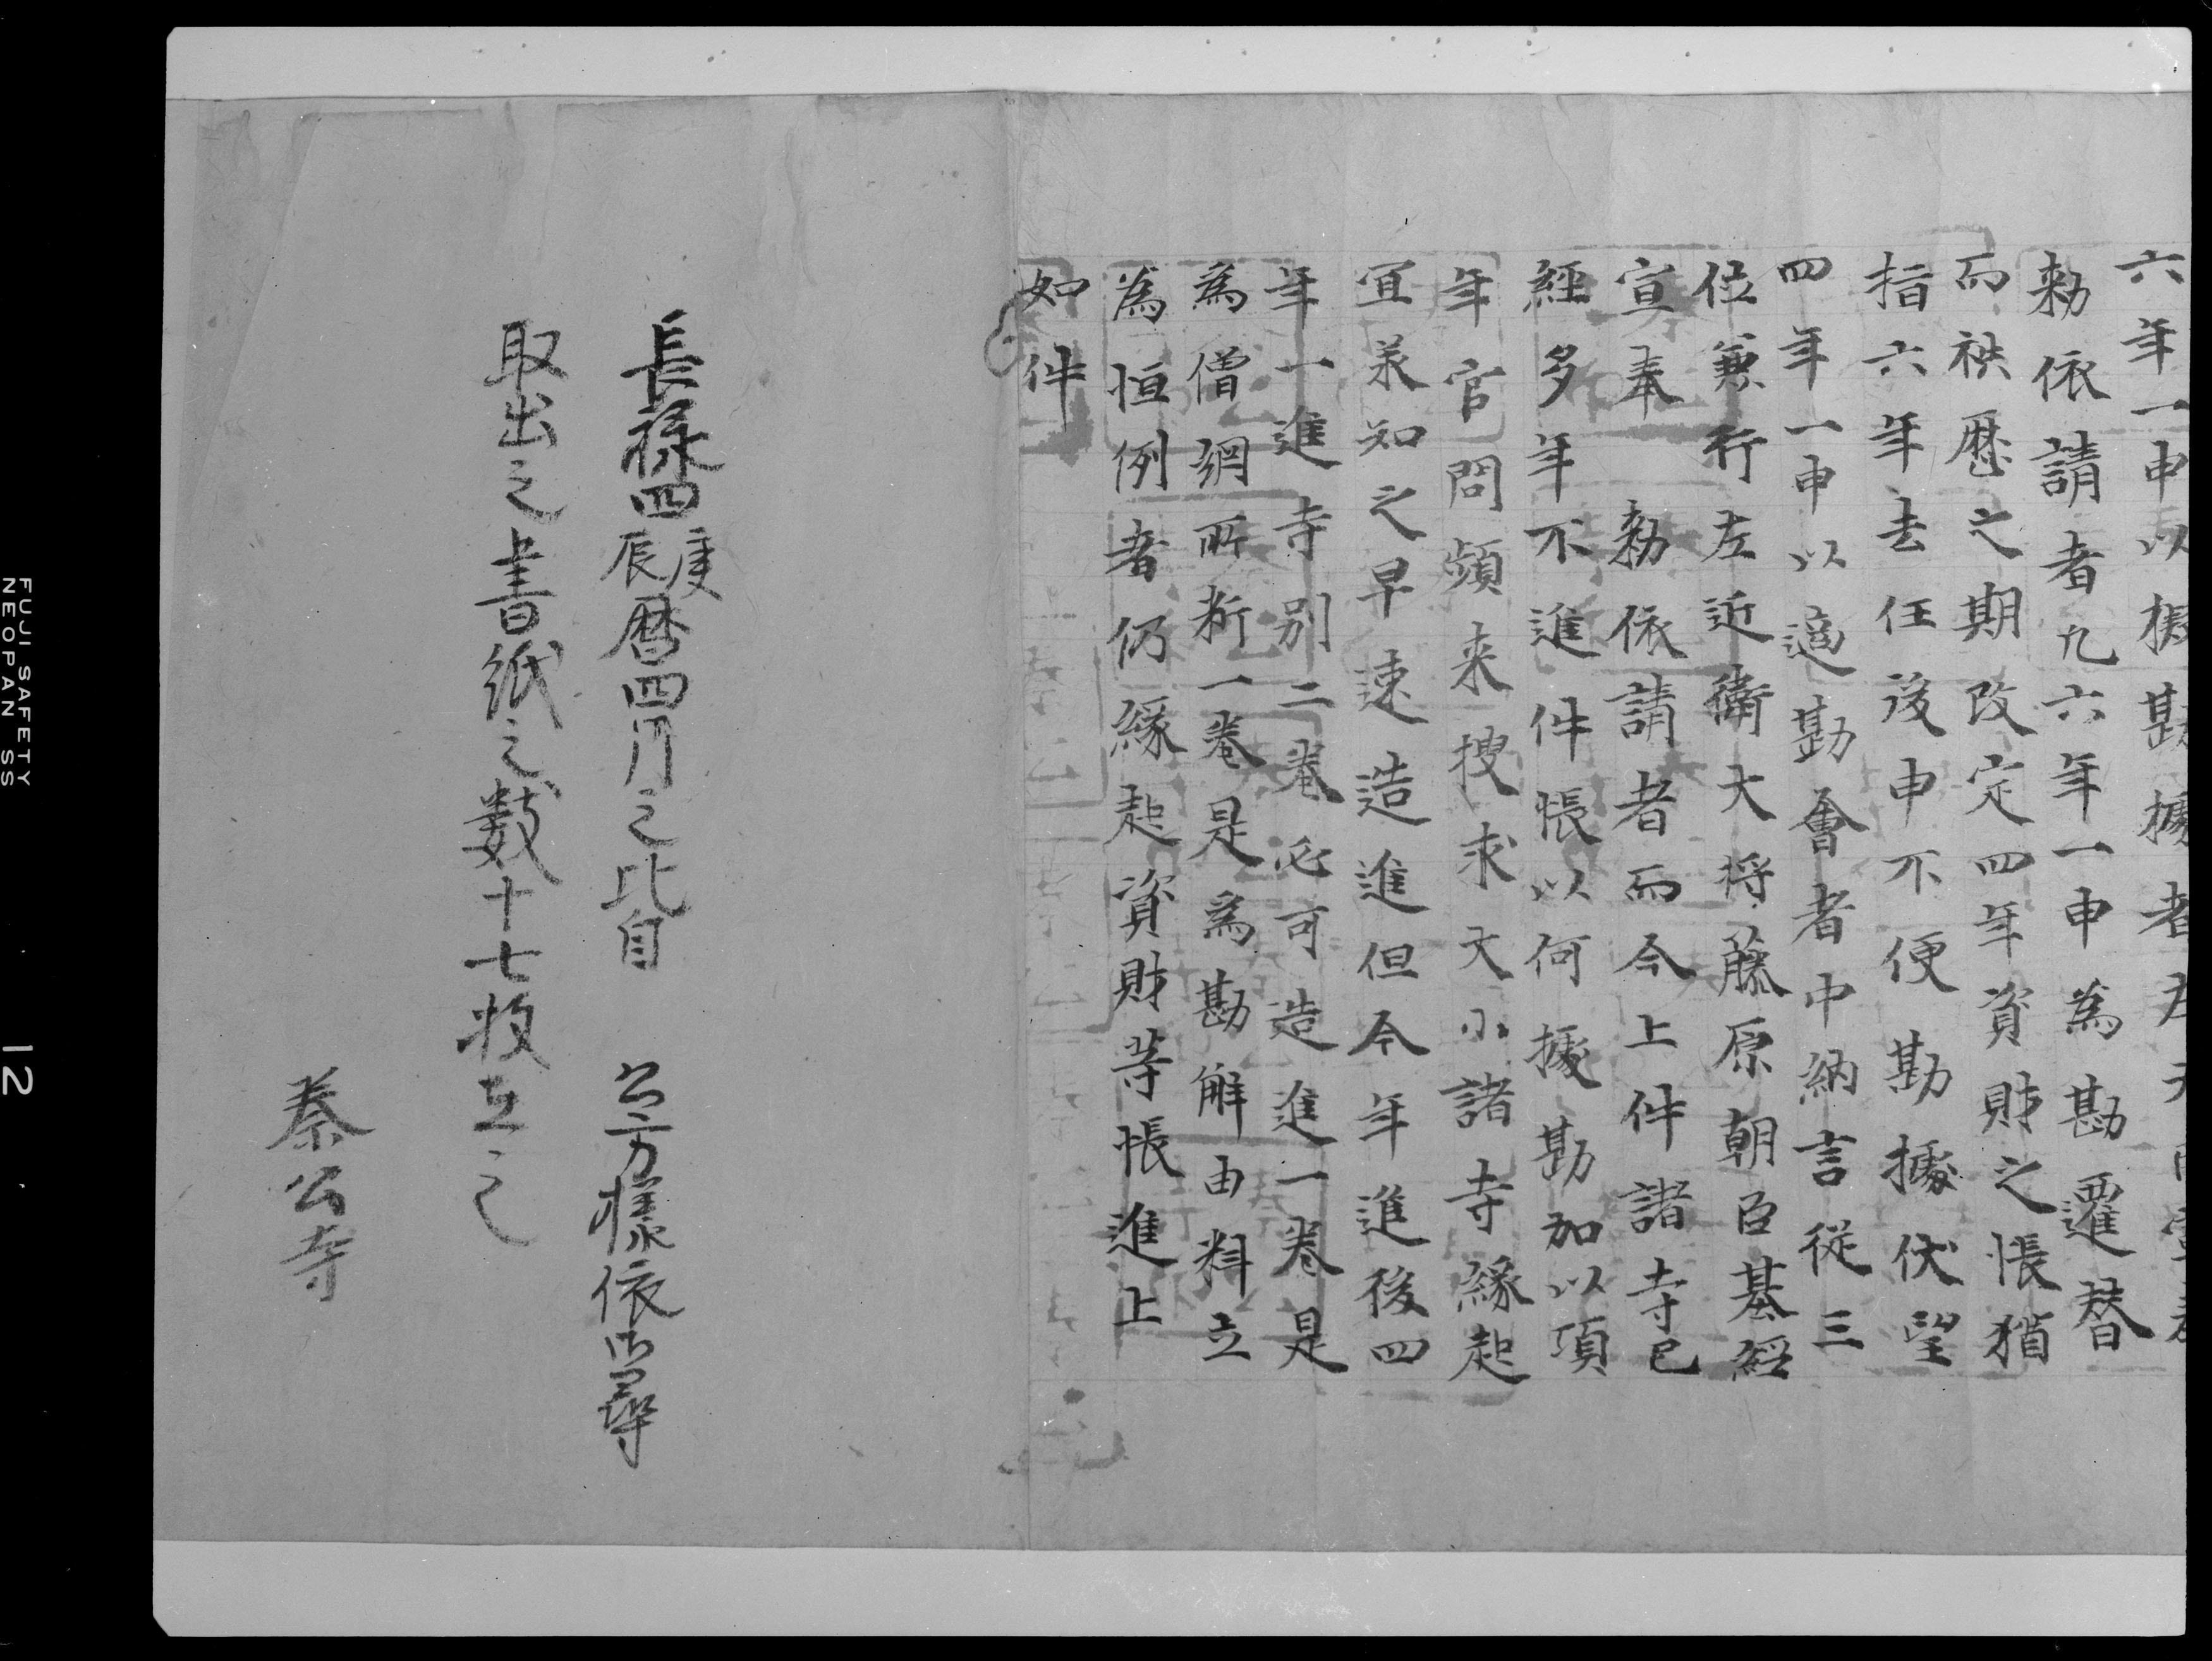 六年一申以擬勘據者左大
勅依請者凡六年一申為勘遷替
而秩歴之期改定四年資財之帳猶
指六年去任後申不便勘據伏望
四年一申以適勘會者中納言従三
位兼行左近衛大将藤原朝臣基經
宣奉勅依請者而今上件諸寺已
經多年不進件帳以何據勘加以項
年官問頻来捜求大小諸寺緣起
宜承知之早速造進但今年進後四
年一進寺別二巻必可造進一巻是
為僧綱所新一巻是為勘解由料立
為恒例者仍緣起資財等帳進上
如件
長禄四庚辰暦四月之比自公方様依御尋
取出之書紙之数十七枚在之
秦公寺
FUJI SAFETY
NEOPAN SS
12